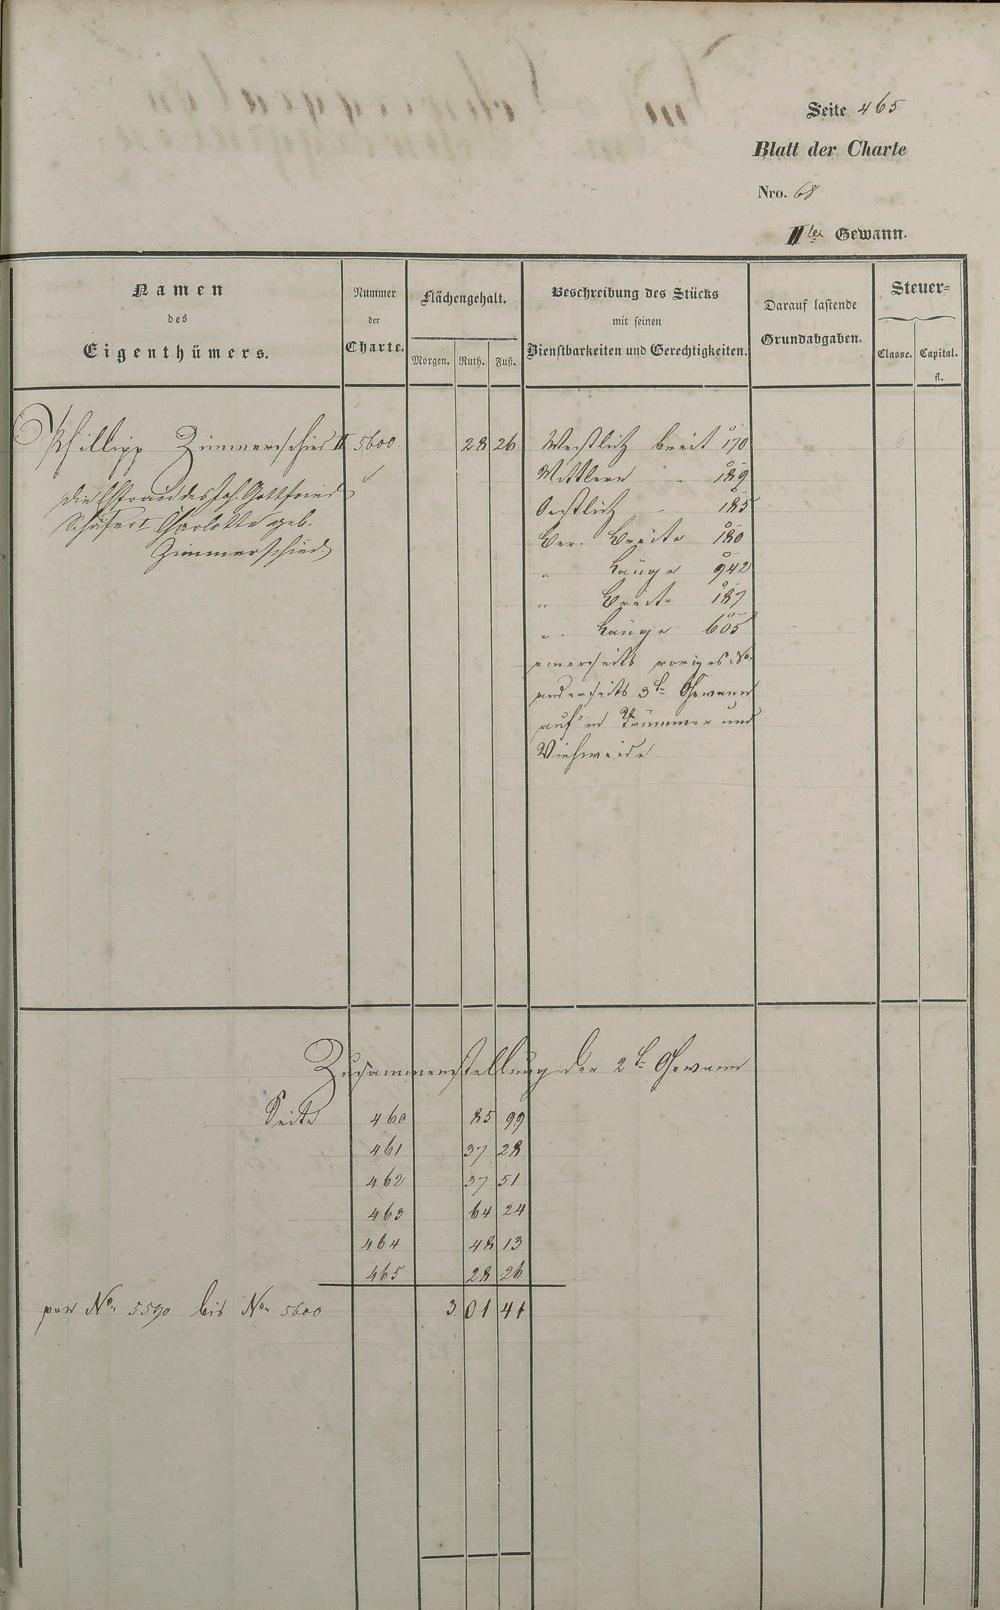 Seite 465
Blatt der Charte
Nro. 68
IIte Gewann.
Namen
des
Eigenthümers.
Nummer
der
Charte.
Flächengehalt.
Morgen. Ruth. Fuß.
Beschreibung des Stücks
mit seinen
Dienstbarkeiten und Gerechtigkeiten.
Darauf lastende
Grundabgaben.
Steuer=
Classe. Capital.
fl.
Phillipp Zimmerschied II 5600. 28 26 Westlich breit 170
Mittlere " 189
Oestlich " 185
Ber. Breite 180
" Länge 942
" Breite 187
" Länge 605
einerseits voriges No.
anderseits 3te Gewann
auf'm Trümmer und
Viehweide
die Ehefrau des Joh. Gottfried
Schäfer I Charlotte geb.
Zimmerschied
Zusammenstellung der 2te Gewann
Seite 460 85 99
461 37 28
462 37 51
463 64 24
464 48 13
465 28 26
von No. 5590 bis No. 5600 3 01 41